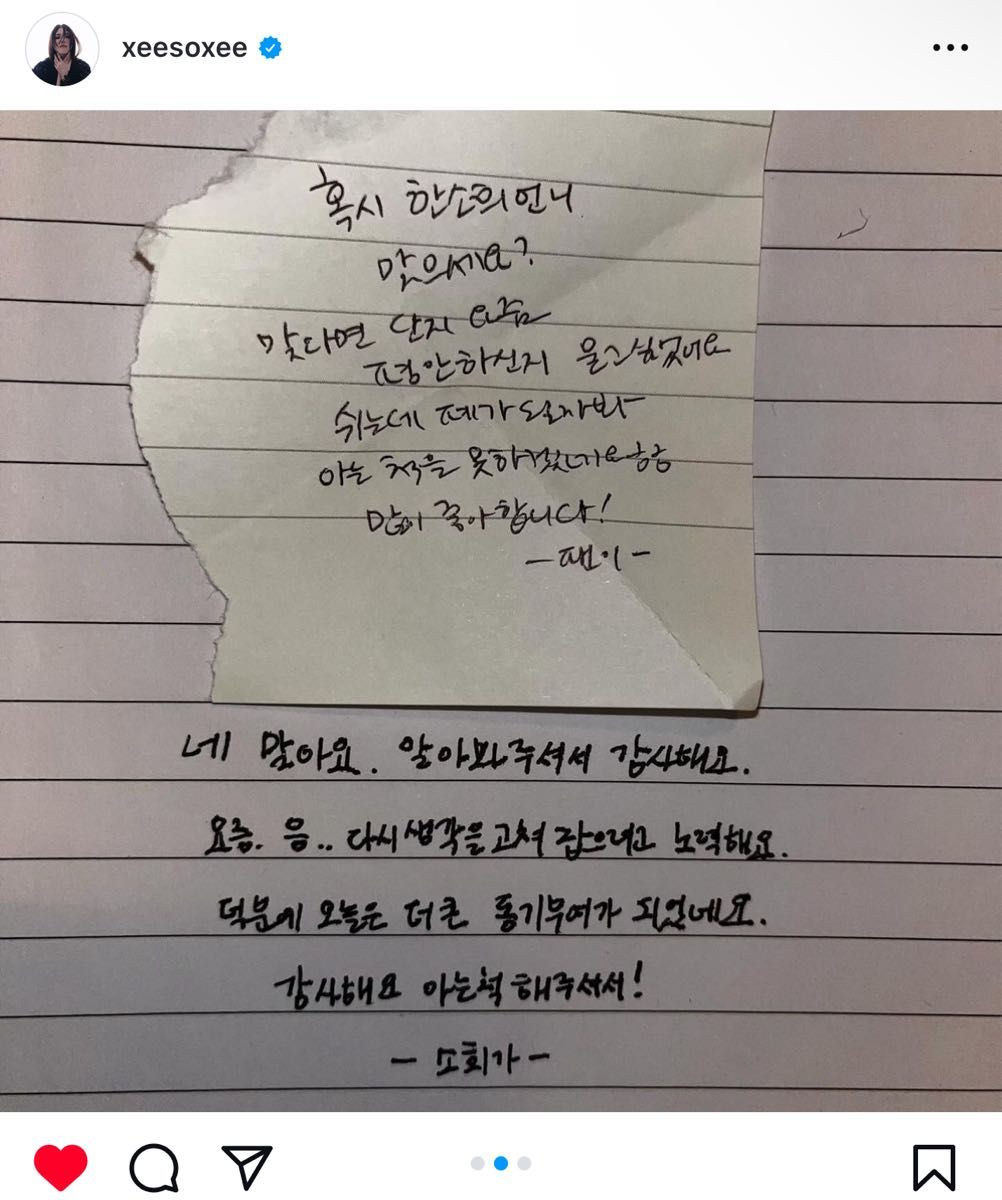 xeesoxee
혹시 한소희언니
맞으세요?
맞다면 단지 요즘
평안하신지 묻고싶었어요
쉬는데 폐가 될까봐
아는 척을
많이 좋아합니다!
- 팬이 -
네 맞아요. 알아봐주셔서 감사해요.
요즘. 음.. 다시 생각을 고쳐 잡으려고 노력해요.
덕분에 오늘은 더 큰 동기부여가 되었네요.
감사해요 아는척 해주셔서!
- 소희가 -